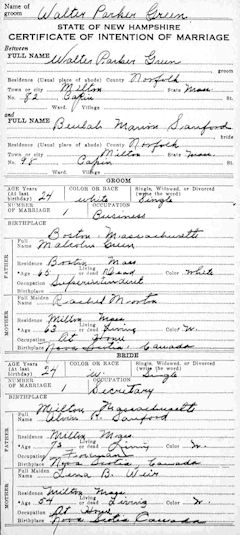 Name of groom Walter Parker Green
STATE OF NEW HAMPSHIRE
CERTIFICATE OF INTENTION OF MARRIAGE
Between
FULL NAME Walter Parker Green
groom
Residence (Usual place of abode) County Norfolk
Town or city Milton State Mass.
No. 82 Capin St.
Ward. Village
and
FULL NAME Beulah Marion Sanford
bride
Residence (Usual place of abode) County Norfolk
Town or city Milton State Mass
No. 98 Capin St.
Ward. Village
GROOM
AGE Years (At last birthday) 24 COLOR OR RACE white Single, Widowed, or Divorced (write the word) Single
NUMBER OF MARRIAGE 1 OCCUPATION Business
BIRTHPLACE
Boston Massachusetts
FATHER Full Name Malcolm Green
Residence Boston Mass
Age 65 Living or Dead Dead Color White
Occupation Superintendent
Birthplace
MOTHER Full Maiden Name Rachel Morton
Residence Milton Mass
Age 63 Living or dead Living Color W.
Occupation At Home
Birthplace Nova Scotia Canada
BRIDE
AGE Years (At last birthday) 24 COLOR OR RACE W. Single, Widowed, or Divorced (write the word) Single
NUMBER OF MARRIAGE 1 OCCUPATION Secretary
BIRTHPLACE
Milton Massachusetts
FATHER Full Name Alvin P. Sanford
Residence Milton Mass
Age Living or dead Living Color W.
Occupation Foreman
Birthplace Nova Scotia, Canada
MOTHER Full Maiden Name Lena B. Weir
Residence Milton Mass
Age 54 Living or dead Living Color W.
Occupation At Home
Birthplace Nova Scotia Canada